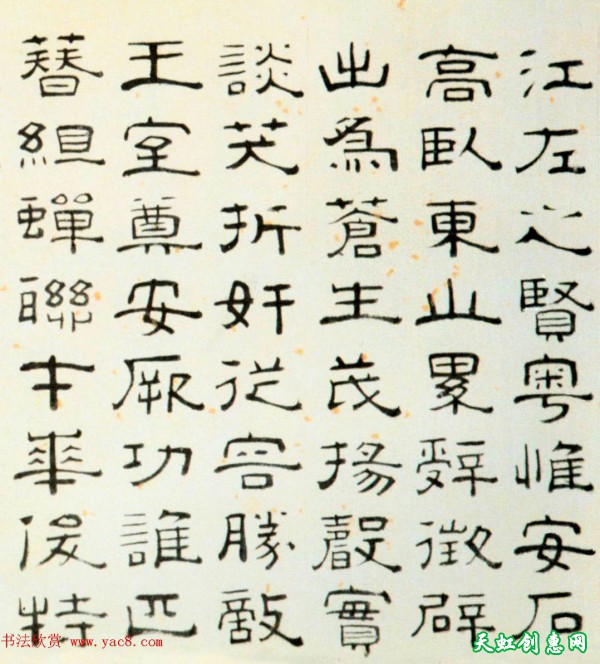 江左之賢粵惟安石
高臥東山累辤徵辟
出為蒼生茂揚聲實
談笑折奸從容勝敵
王室奠安厥功誰匹
簪組蟬聯才華俊特
书法欣赏 www.yac8.com
天虹创惠网